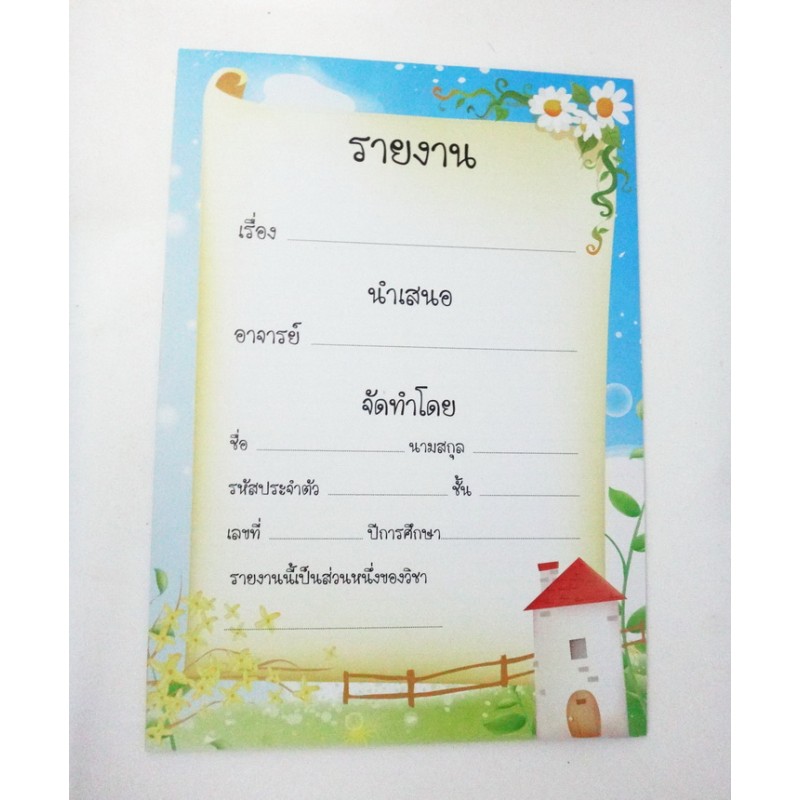 รายงาน
เรื่อง
นำเสนอ
อาจารย์
จัดทำโดย
ชื่อ นามสกุล
รหัสประจำตัว ชั้น
เลขที่ ปีการศึกษา
รายงานนี้เป็นส่วนหนึ่งของวิชา